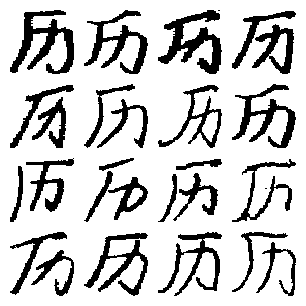 历历历历
历历历历
历历历历
历历历历